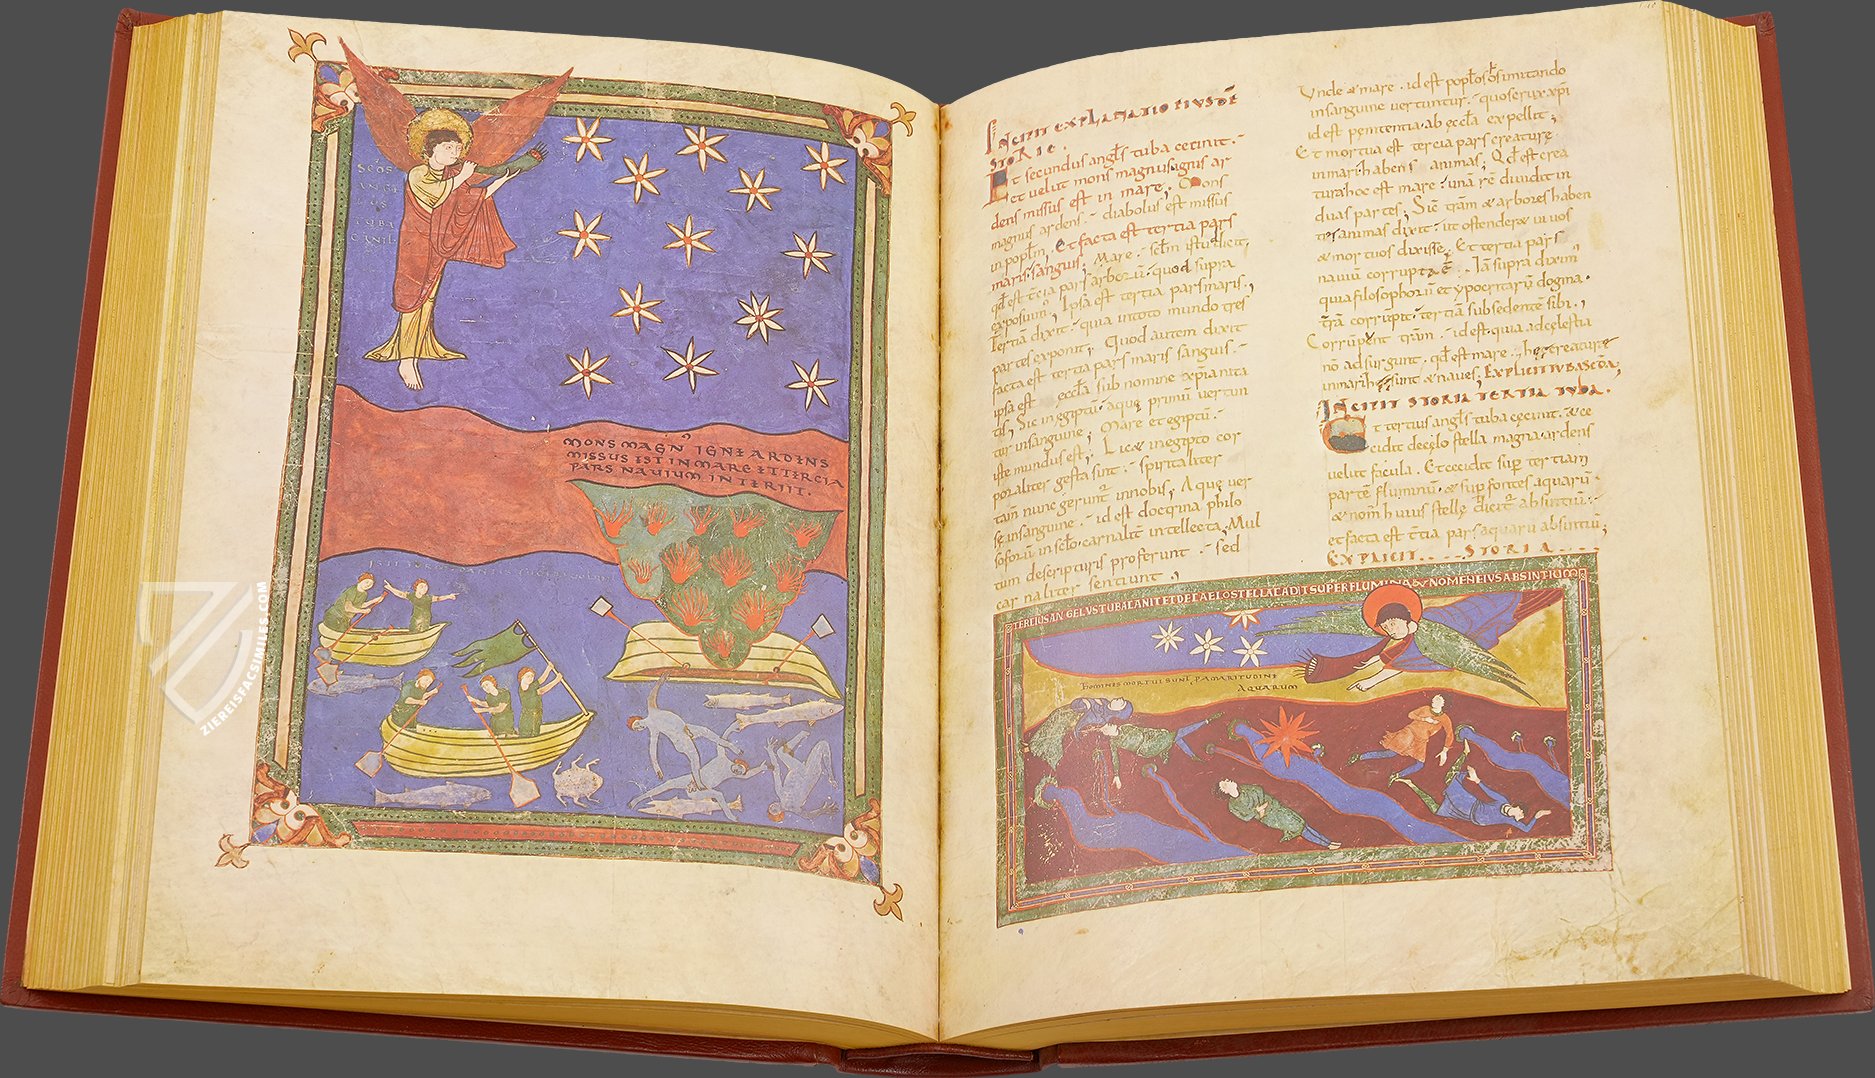 SCƏS
ANGE
LUS
TUBA
CANIT.
MONS MAGN' IGNE ARDENS
MISSUS EST IN MARE ET TERCIA
PARS NAVIUM INTERIIT.
INCIPIT EXPLANATIO EIUSDĒ
STORIE.
Et secundus angls tuba cecinit.
Et velut mons magnus ignis ar
dens missus est in mare; Mons
magnus ardens. diabolus est missus
in poplm, Et facta est tertia pars
maris sanguis; Mare. sclm istud dicit,
qđ est tercia pars arborum. quod supra
exposuim', Ipsa est tertia pars maris,
Tertiā dixit. quia in toto mundo tres
partes exponit; Quod autem dixit
facta est tercia pars maris sanguis.
ipsa est ecclā sub nomine xp̄ianita
tis, Sic in egiptu. aque primū vertun
tur in sanguine; Mare et egiptū.
iste mundus est; Hec in egipto cor
poraliter gesta sunt. spiritaliter
tam nunc gerunt in nobis; Aque ver
se in sanguine. id est doctrina philo
soforū in sclo. carnalit intellecta; Mul
tum de scripturis proferunt. sed
carnaliter sentiunt;
Unde & mare. id est poplos os imitando
in sanguine vertuntur. quos crux xp̄i
id est penitentia. ab eccla expellit;
Et mortua est tercia pars creature
in mari habens animas; Qđ est crea
tura hoc est mare. unā rē dividit in
duas partes; Sic trām & arbores haben
tes animas dixit. ut ostenderet vivos
& mortuos dixisse, Et tertia pars
naviū corrupta ē. Iā supra diximˀ
quia filosophorū et ypocritarū dogma.
trā corrupit. tertiā sub sedente sibi,
Corrūpent trām. id est. quia ad celestia
nō adsurgunt. qđ est mare. hec creature
in mari hec sunt & naves; EXPLICIT TUBA SCDA,
INCIPIT STORIA TERTIA TUBA.
Et tertius angls tuba cecinit. & ce
cidit de celo stella magna. ardens
velut facula. Et cecidit sup tertiam
partē fluminū. & sup fontes aquarū.
& nom̄ huius stelle dicit absintiū.
et facta est tcia pars aquarū absintiū;
EXPLICIT.... STORIA....
TERCIUS ANGELUS TUBA CANIT ET DE CAELO STELLA CADIT SUPER FLUMINA CUI NOMEN EIUS ABSINTIUM
HOMINES MORTUI SUNT P AMARITUDINE
AQUARUM
ZIEREISFACSIMILES.COM